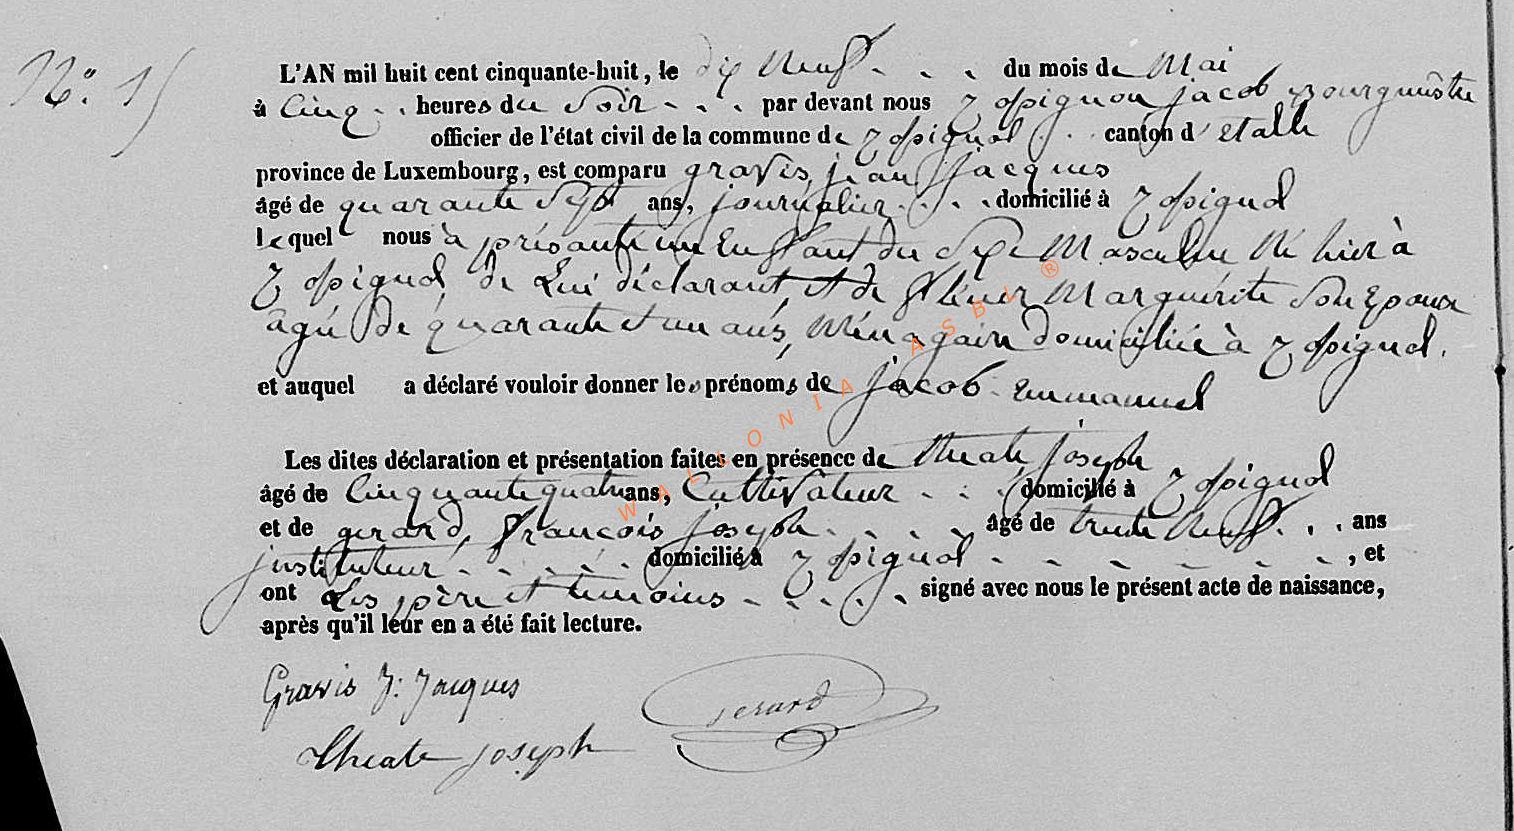 N°. 15
L'AN mil huit cent cinquante-huit, le dix Neuf - - - du mois de Mai
à Cinq - . heures du Soir - - - . par devant nous jacob Bourguméstre
officier de l'état civil de la commune de - . canton d'étalle
province de Luxembourg, est comparu gravis, jean jacques
âgé de quarante Sept ans, journalier - - . - domicilié à
lequel nous à présanté un Enfant du Sexe Masculin Né hier à
de Lui déclarant, et de Marguérite Son Epouse
agée de quarante et un ans, Ménagaire domiciliée à
et auquel a déclaré vouloir donner les prénoms de jacob - Emmanuel
Les dites déclaration et présentation faites en présence de joseph
âgé de Cinquante quatre ans, Cultivateur - - - domicilié à
et de gerard, françois joseph - - - - âgé de trente Neuf - . . ans
instituteur - - - - - domicilié à - - - - - - -, et
ont Les père et temoins - - - - - signé avec nous le présent acte de naissance,
après qu'il leur en a été fait lecture.
Gravis J: Jacques
Gerard
Joseph
WALLONIA ASBL ®